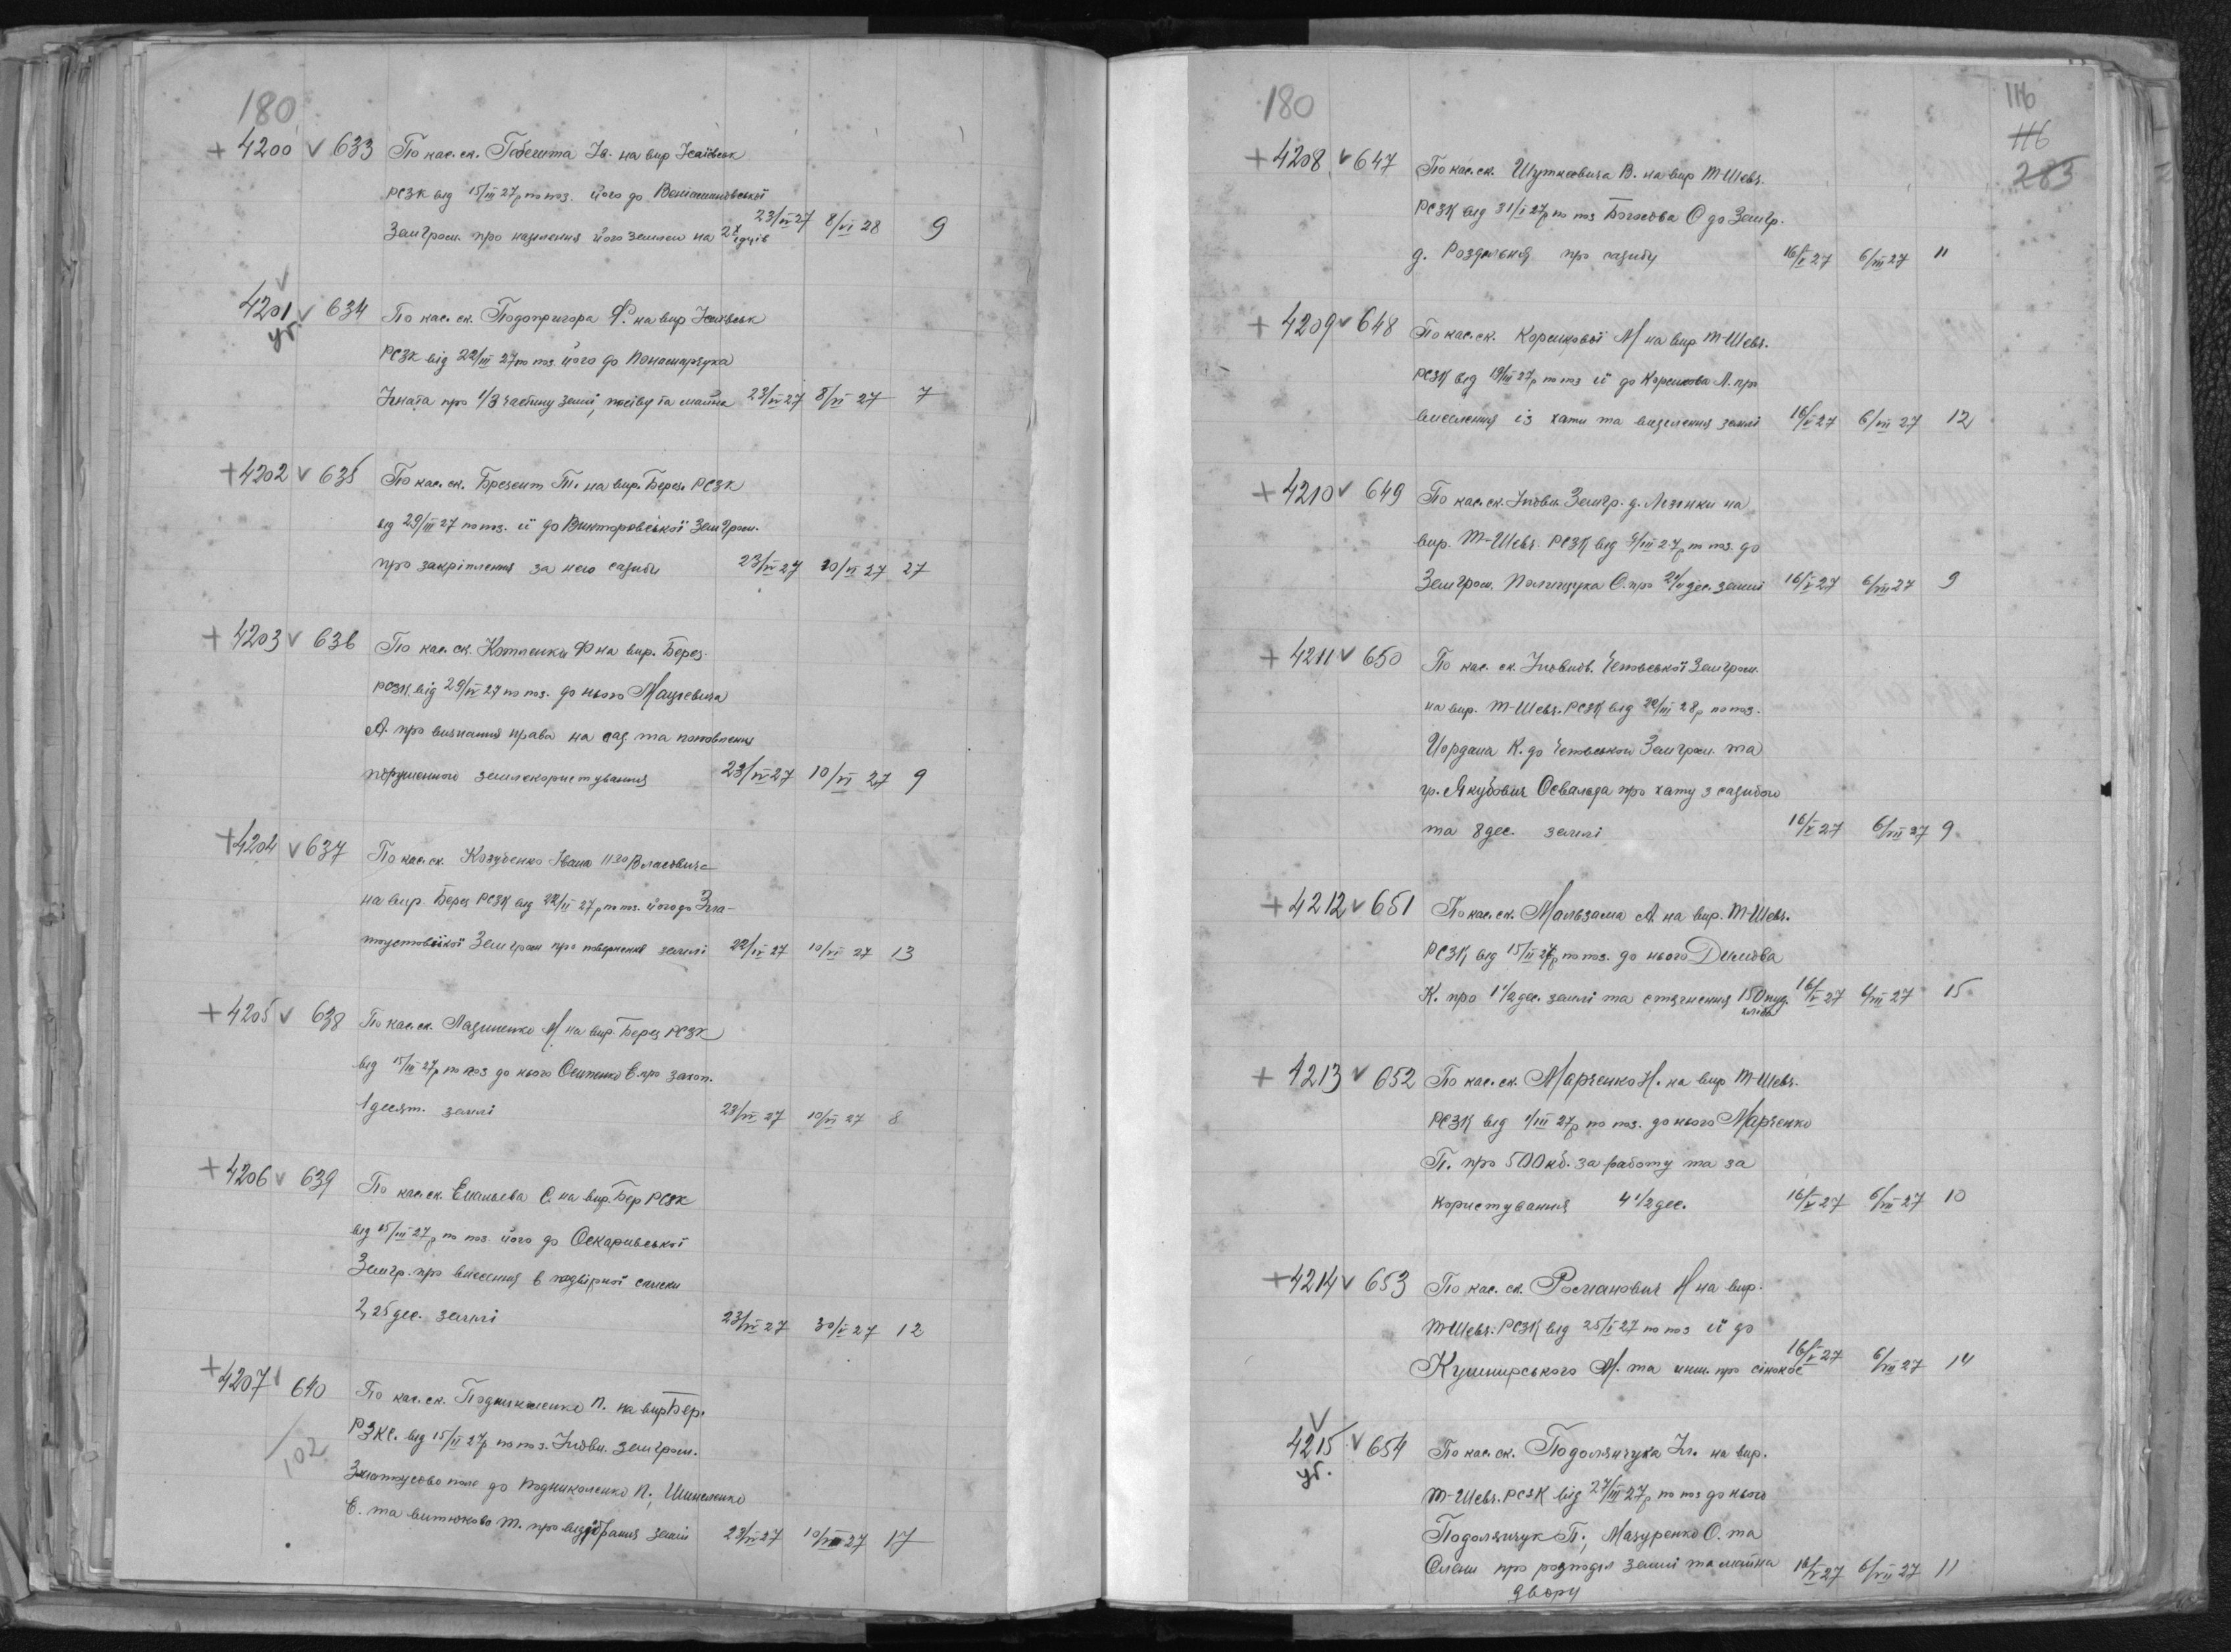 180
+ 4200 v 633 По кас. ск. Гебешта Ів. на вир Ісаївськ
РСЗК від 15/III 27р по поз. його до Веніаминовської
Земгром. про наділення його землею на 2х едців 23/IV 27 8/VI 28 9
v
4201 v 634 По кас. ск. Подопригора Ф. на вир Ісаївськ
уг.
РСЗК від 22/III 27 по поз. його до Пономарчука
Ігната про 1/3 частину землі, посіву та майна 23/IV 27 8/VI 27 7
+ 4202 v 635 По кас. ск. Брезент Т. на вир. Берез. РСЗК
від 29/III 27 по поз. її до Викторовської Земгром.
про закріплення за нею садиби 23/IV 27 10/VI 27 27
+ 4203 v 636 По кас. ск. Котленка Ф на вир. Берез.
РСЗК від 29/IV 27 по поз. до нього Мацкевича
А. про визнання права на сад та поновлення
порушенного землекористування 23/IV 27 10/VI 27 9
+ 4204 v 637 По кас. ск. Козубенко Івана Власовича
на вир. Берез РСЗК від 22/II 27р по поз. його до Зла-
тоустовської Земгром про повернення землі 22/IV 27 10/VI 27 13
+ 4205 v 638 По кас. ск. Лазиненко М на вир. Берез РСЗК
від 15/III 27р по поз до нього Осипенко Е. про закоп.
1 десят. землі 23/IV 27 10/VI 27 8
+ 4206 v 639 По кас. ск. Емільева С. на вир. Бер РСЗК
від 15/III 27р по поз. його до Оскаривської
Земгр. про внесення в подвірної списки
2,25 дес. землі 23/IV 27 30/V 27 12
+ 4207 v 640 По кас. ск. Подниколенко П. на вир Бер.
102
РЗКС. від 15/II 27р по поз. Уповн. земгром.
Златоустово поле до Подниколенко П., Шинеленко
Е. та витюково Т. про відібрання землі 23/IV 27 10/VI 27 17
180
116
116
283
+ 4208 v 647 По кас. ск. Шутковича В. на вир Т-Шевч.
РСЗК від 31/I 27р по поз Богосова О до Земгр.
д. Роздольня про садибу 16/V 27 6/VII 27 11
+ 4209 v 648 По кас. ск. Корсикової М на вир Т-Шевч.
РСЗК від 19/III 27р по поз її до Корсикова Л. про
виселення із хати та виділення землі 16/V 27 6/VII 27 12
+ 4210 v 649 По кас. ск. Уповн. Земгр. д. Лозинки на
вир. Т-Шевч. РСЗК від 9/III 27р по поз. до
Земгром. Полищука О. про дес. землі 16/V 27 6/VII 27 9
+ 4211 v 650 По кас. ск. Уповнов. Земгром.
на вир. Т-Шевч. РСЗК від 22/III 28р по поз.
Йордана К. до Земгром. та
гр. Якубович Освальда про хату з садибою
та 8 дес. землі 16/V 27 6/VII 27 9
+ 4212 v 651 По кас. ск. Мальзама А. на вир. Т-Шевч.
РСЗК від 15/II 27р по поз. до нього Димова
К. про 1 1/2 дес. землі та стягнення 150 пуд. 16/V 27 6/VII 27 15
хліба
+ 4213 v 652 По кас. ск. Марченко Н. на вир Т-Шевч.
РСЗК від 1/III 27р по поз. до нього Марченко
П. про 500 кб. за работу та за
користування 4 1/2 дес. 16/V 27 6/VII 27 10
+ 4214 v 653 По кас. ск. Романович Н на вир.
Т-Шевч. РСЗК від 25/I 27 по поз її до
Кушнирського М. та инш. про сінокос 16/V 27 6/VII 27 14
v
4215 v 654 По кас. ск. Подолянчука Іл. на вир.
уг.
Т-Шевч. РСЗК від 27/III 27р по поз до нього
Подолянчук П., Мазуренко О. та
Олени про розподіл землі та майна 16/V 27 6/VII 27 11
двору